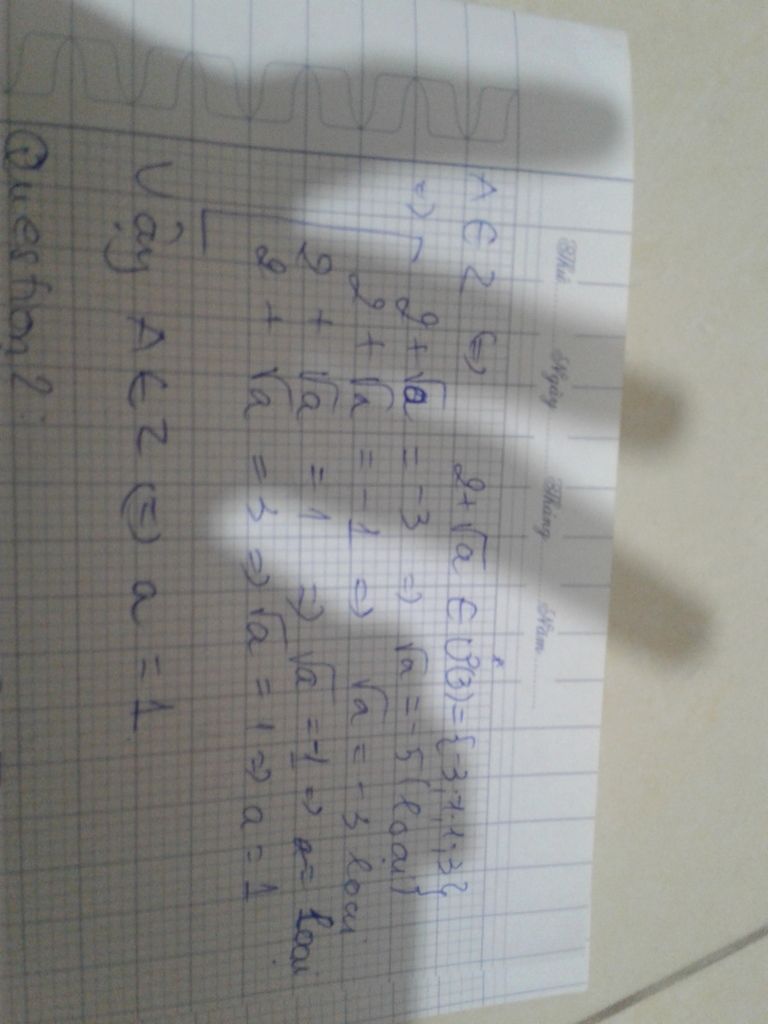 Thứ Ngày Tháng Năm
A ∈ Z ⇔ 2+√a ∈ Ư(3) = {-3,-1,1,3}
⇒ [ 2+√a = -3 ⇒ √a = -5 (loại)
2+√a = -1 ⇒ √a = -3 loại
2+√a = 1 ⇒ √a = -1 ⇒ a = loại
2+√a = 3 ⇒ √a = 1 ⇒ a = 1
Vậy A ∈ Z ⇔ a = 1
Question 2: